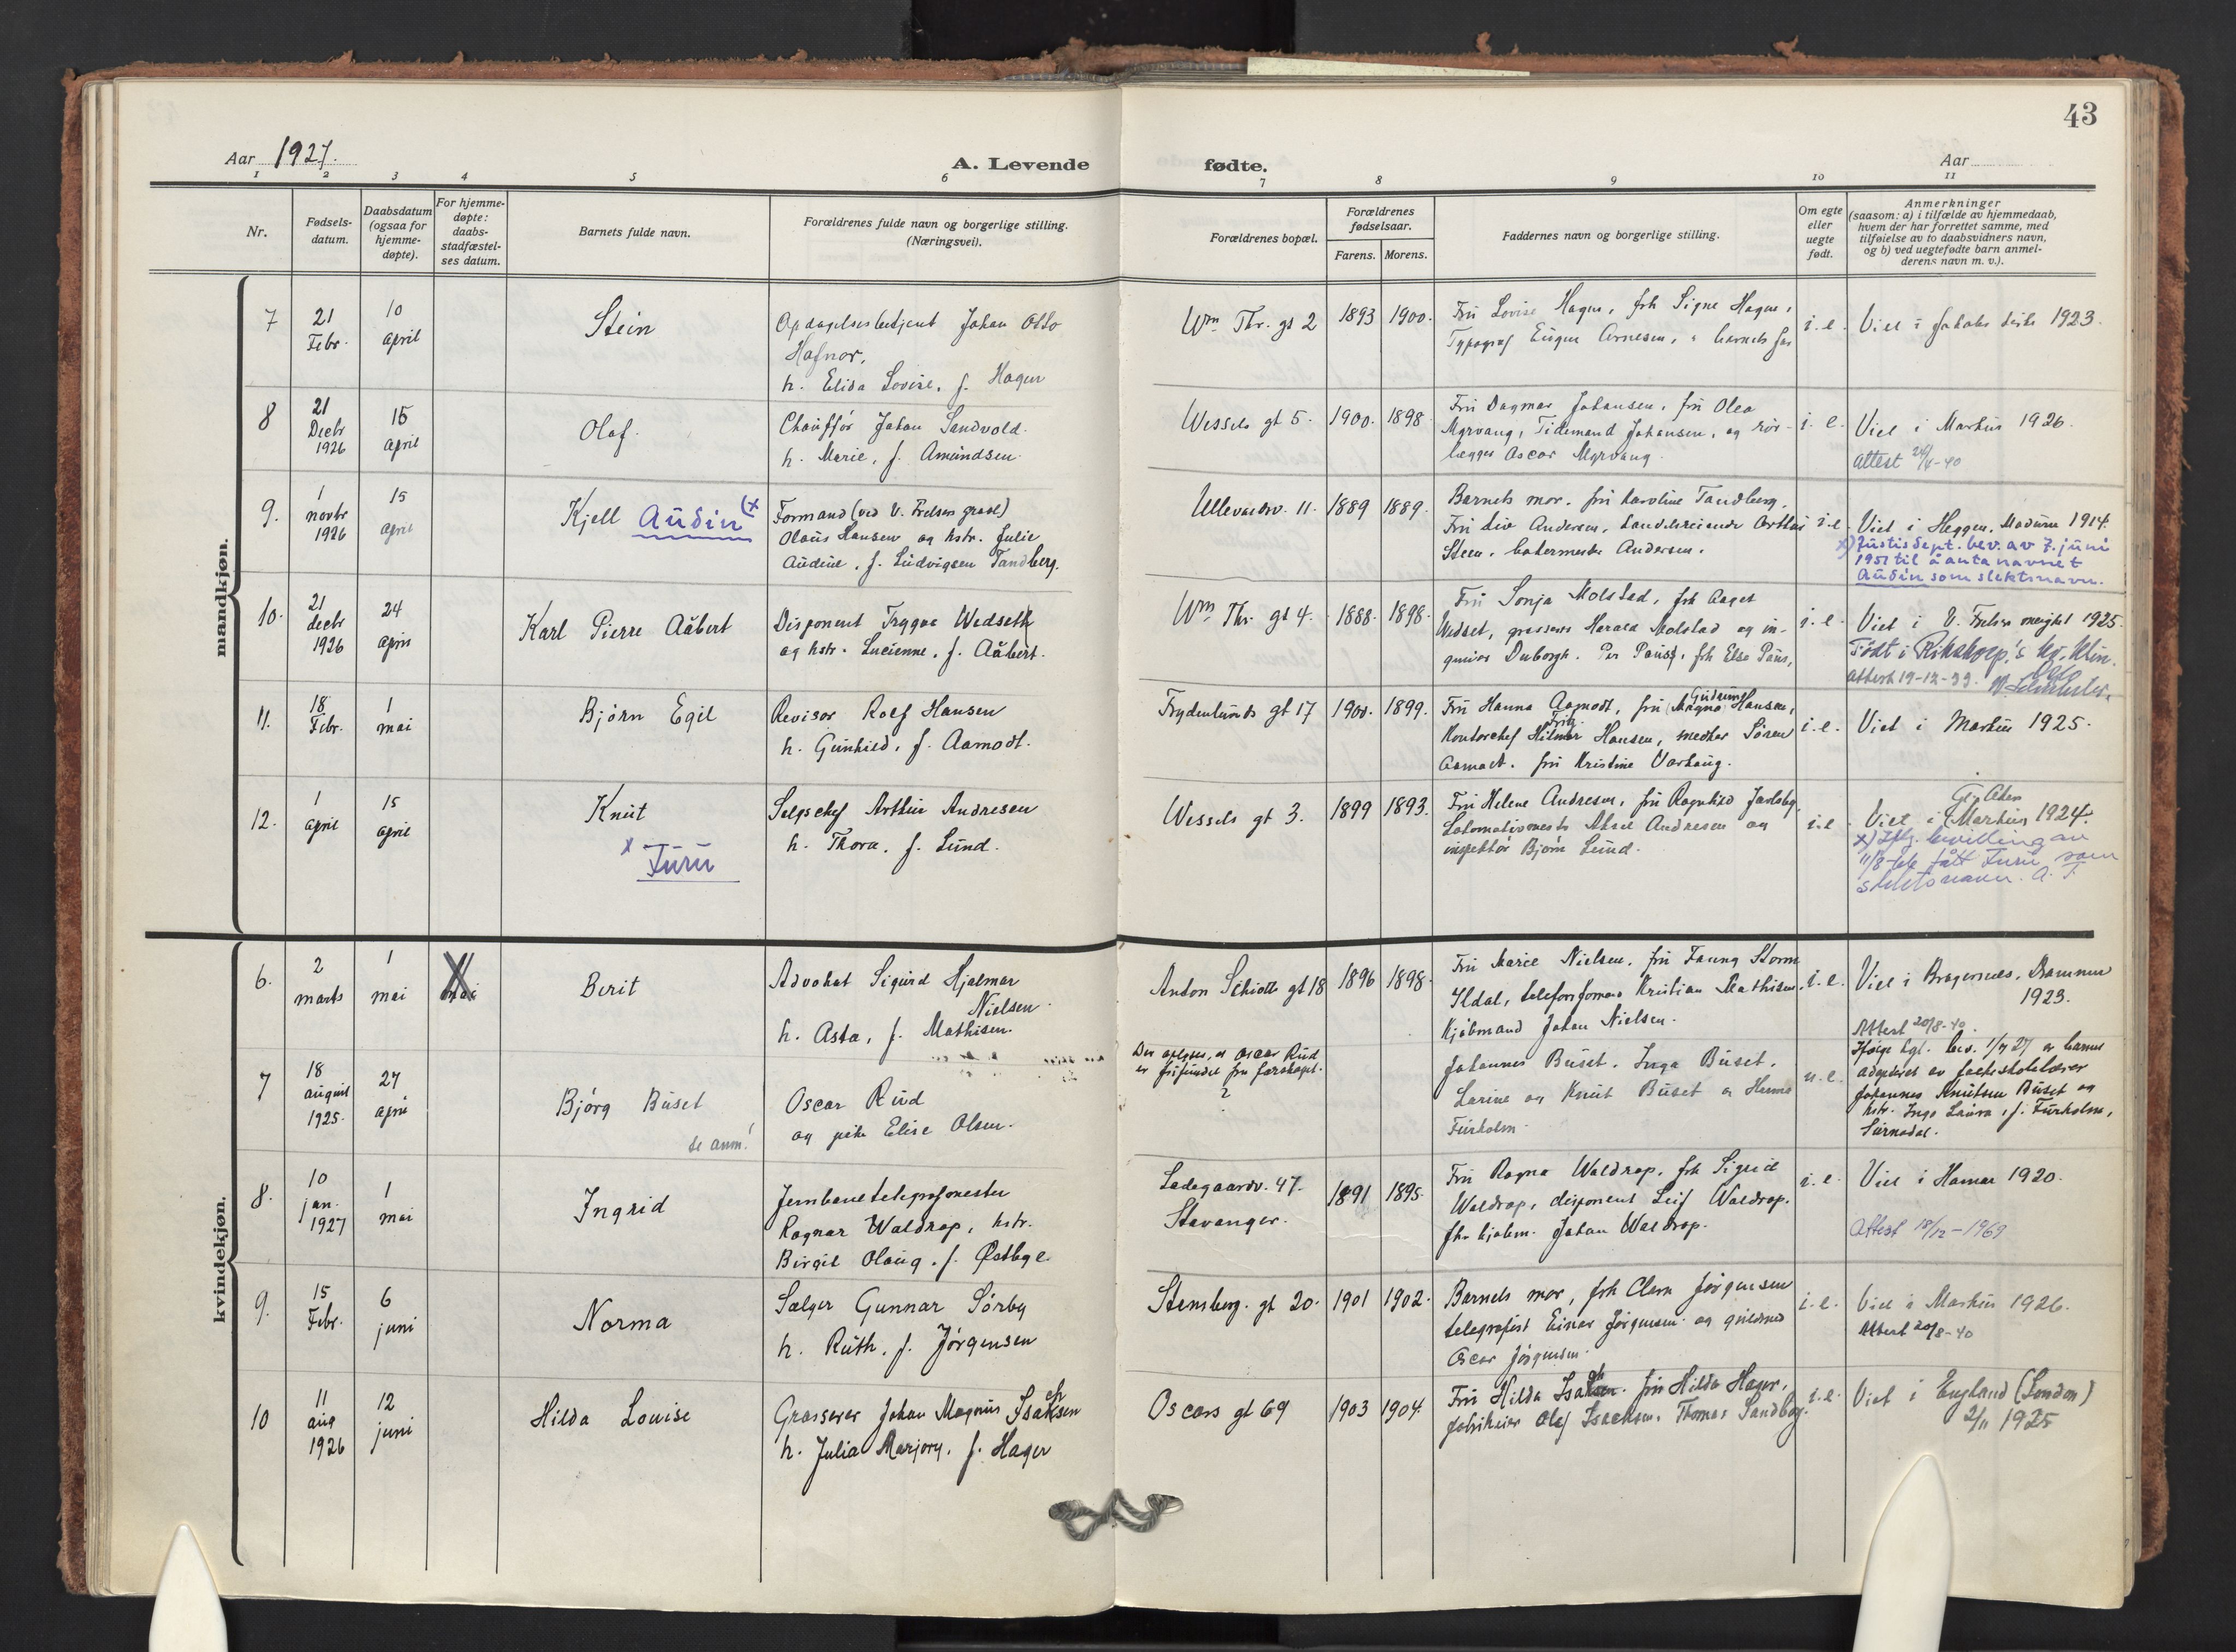 43
Aar 1927.
A. Levende fødte.
Aar
1 2 3 4 5 6 7 8 9 10 11
Nr.
Fødsels-
datum.
Daabsdatum
(ogsaa for
hjemme-
døpte).
For hjemme-
døpte:
daabs-
stadfæstel-
ses datum.
Barnets fulde navn.
Forældrenes fulde navn og borgerlige stilling.
(Næringsvei).
Forældrenes bopæl.
Forældrenes
fødselsaar.
Farens. Morens.
Faddernes navn og borgerlige stilling.
Om egte
eller
uegte
født.
Anmerkninger
(saasom: a) i tilfælde av hjemmedaab,
hvem der har forrettet samme, med
tilføielse av to daabsvidners navn,
og b) ved uegtefødte barn anmel-
derens navn m. v.).
mandkjøn.
7
21
Febr.
10
april
Stein
Opdagelsesbetjent Johan Otto
Hafnor,
h. Elida Lovise, f. Hagen
Wm Thr. gt 2
1893 1900.
Fru Lovise Hagen, frk Signe Hagen,
Typograf Eugen Arnesen, barnets far
i. e.
Viet i Jakobs kirke 1923.
8
21
Decbr
1926
15
april
Olaf.
Chauffør Johan Sandvold.
h. Marie, f. Amundsen.
Wessels gt 5.
1900. 1898.
Fru Dagmar Johansen, fru Olea
Myrvang, Tidemand Johansen, og rør-
lægger Oscar Myrvang.
i. e.
Viet i Markus 1926.
Attest 24/4-40
9.
1
novbr
1926
15
april
Kjell Audin (x
Formand (ved V. Frelsers gravl)
Olaus Hansen og hstr. Julie
Audine, f. Ludvigsen Tandberg.
Ullevaalsv. 11.
1889 1889.
Barnets mor, fru Karoline Tandberg,
Fru Liv Andersen,
Steen, Andersen.
i. e.
Viet i Heggen, Modum 1914.
x) Justisdept. bev. av 7. juni
1951 til å anta navnet
Audin som slektsnavn.
10.
21
decbr
1926
24
april
Karl Pierre Aåbert
Disponent Trygve Wedseth
og hstr. Lucienne, f. Aåbert.
Wm Thr. gt 4.
1888. 1898.
Fru Sonja Molstad, frk Aagot
Wedset, grosserer Harald Molstad og in-
geniør Duborgh. Per Paus, frk Else Paus,
i. e.
Viet i V. Frelser menighet 1925.
Født i Rikshosp.'s kv. klin.
Attest 19-12-39.
11.
18
Febr.
1
mai
Bjørn Egil
Revisor Rolf Hansen
h. Gunhild, f. Aamodt.
Frydenlunds gt 17
1900. 1899.
Fru Hanna Aamodt, fru (Magna) Gudrun Hansen,
Kontorchef Hilmar Fritz Hansen, Søren
Aamodt. fru Kristine Varhaug.
i. e.
Viet i Markus 1925.
12.
1
april
15
april
Knut
x Furu
Salgschef Arthur Andresen
h. Thora, f. Lund.
Wessels gt 3.
1899 1893.
Fru Helene Andresen, fru Ragnhild Jarlsby,
Lokomotivmester Aksel Andresen og
inspektør Bjørn Lund.
i. e.
Gl. Aker
Viet i (Markus) 1924.
x) Iflg. bevilling av
11/8 fått Furu som
slektsnavn. A. F.
kvindekjøn.
6.
2
marts
1
mai
mai
Berit
Advokat Sigurd Hjalmar
Nielsen
h. Asta, f. Mathisen.
Anton Schiøtts gt 18
1896 1898.
Fru Marie Nielsen, fru Fanny Storm
Ildal, telefonformand Kristian Mathisen,
Kjøbmand Johan Nielsen.
i. e.
Viet i Bragernes, Drammen
1923.
Attest 20/8-40.
7
18
august
1925.
27
april
Bjørg Buset
se anm!
Oscar Rud
og pike Elise Olsen.
Der oplyses, at Oscar Rud
er frifundet for farskapet.
?
Johannes Buset, Inga Buset,
Larine og Knut Buset og
Furholm.
u. e.
Ifølge kgl. bev. 1/7 27 er barnet
adoptert av
Johannes Knutsen Buset og
hstr. Inga Laura, f. Furholm,
Surnadal.
8.
10
jan.
1927
1
mai
Ingrid
Jernbanetelegrafmester
Ragnar Waldrop, hstr.
Birgit Olaug, f. Østbye
Ladegaardv. 47.
Stavanger.
1891 1895.
Fru Ragna Waldrop, frk Sigrid
Waldrop, disponent Leif Waldrop.
fhv. kjøbm. Johan Waldrop.
i. e.
Viet i Hamar 1920.
Attest 18/12-1969
9.
15
Febr.
6
juni
Norma
Sælger Gunnar Sørby
h. Ruth, f. Jørgensen
Stensberg. gt 20.
1901 1902.
Barnets mor, frk Clara Jørgensen
telegrafist Einar Jørgensen og guldsmed
Oscar Jørgensen.
i. e.
Viet i Markus 1926.
Attest 20/8-40
10
11
aug
1926
12
juni
Hilda Louise
Grosserer Johan Magnus Isaksen
h. Julia Marjory, f. Hager
Oscars gt 69
1903 1904.
Fru Hilda Isaksen. fru Hilda Hager,
fabrikeier Olaf Isachsen, Thomas Sandborg.
i. e.
Viet i England (London)
2/11 1925